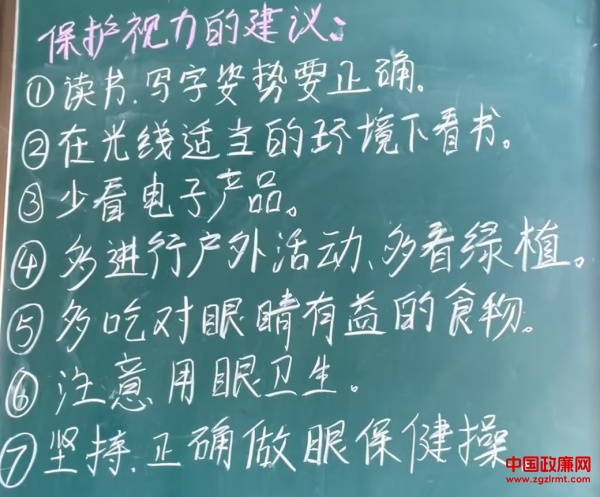 保护视力的建议:
①读书.写字姿势要正确.
②在光线适当的环境下看书。
③少看电子产品。
④多进行户外活动、多看绿植。
⑤多吃对眼睛有益的食物。
⑥注意用眼卫生。
⑦坚持.正确做眼保健操
中国政廉网
www.zgzlrmt.com